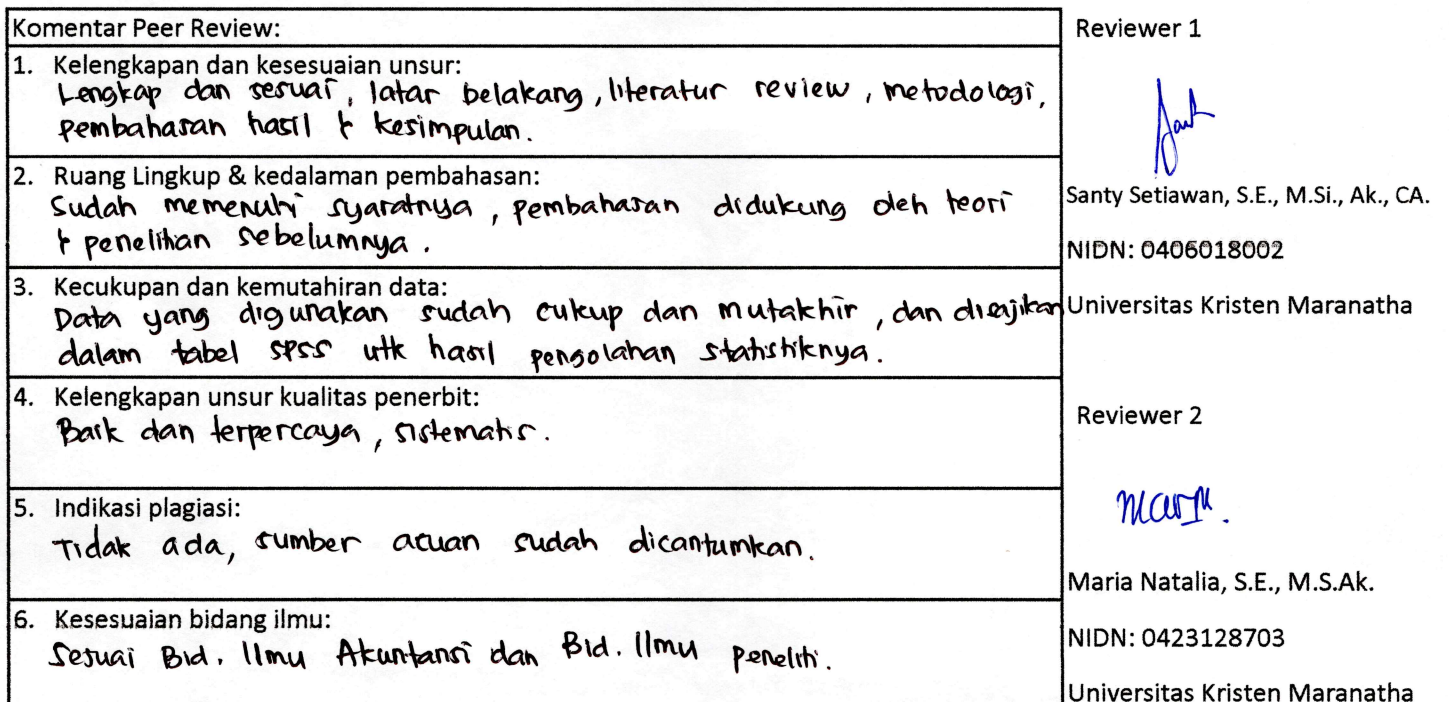 Komentar Peer Review:
1. Kelengkapan dan kesesuaian unsur:
Lengkap dan sesuai, latar belakang, literatur review, metodologi,
pembahasan hasil & kesimpulan.
2. Ruang Lingkup & kedalaman pembahasan:
Sudah memenuhi syaratnya, pembahasan didukung oleh teori
& penelitian sebelumnya.
3. Kecukupan dan kemutahiran data:
Data yang digunakan sudah cukup dan mutakhir, dan disajikan
dalam tabel SPSS utk hasil pengolahan statistiknya.
4. Kelengkapan unsur kualitas penerbit:
Baik dan terpercaya, sistematis.
5. Indikasi plagiasi:
Tidak ada, sumber acuan sudah dicantumkan.
6. Kesesuaian bidang ilmu:
Sesuai Bid. Ilmu Akuntansi dan Bid. Ilmu peneliti.
Reviewer 1
Santy Setiawan, S.E., M.Si., Ak., CA.
NIDN: 0406018002
Universitas Kristen Maranatha
Reviewer 2
Maria Natalia, S.E., M.S.Ak.
NIDN: 0423128703
Universitas Kristen Maranatha